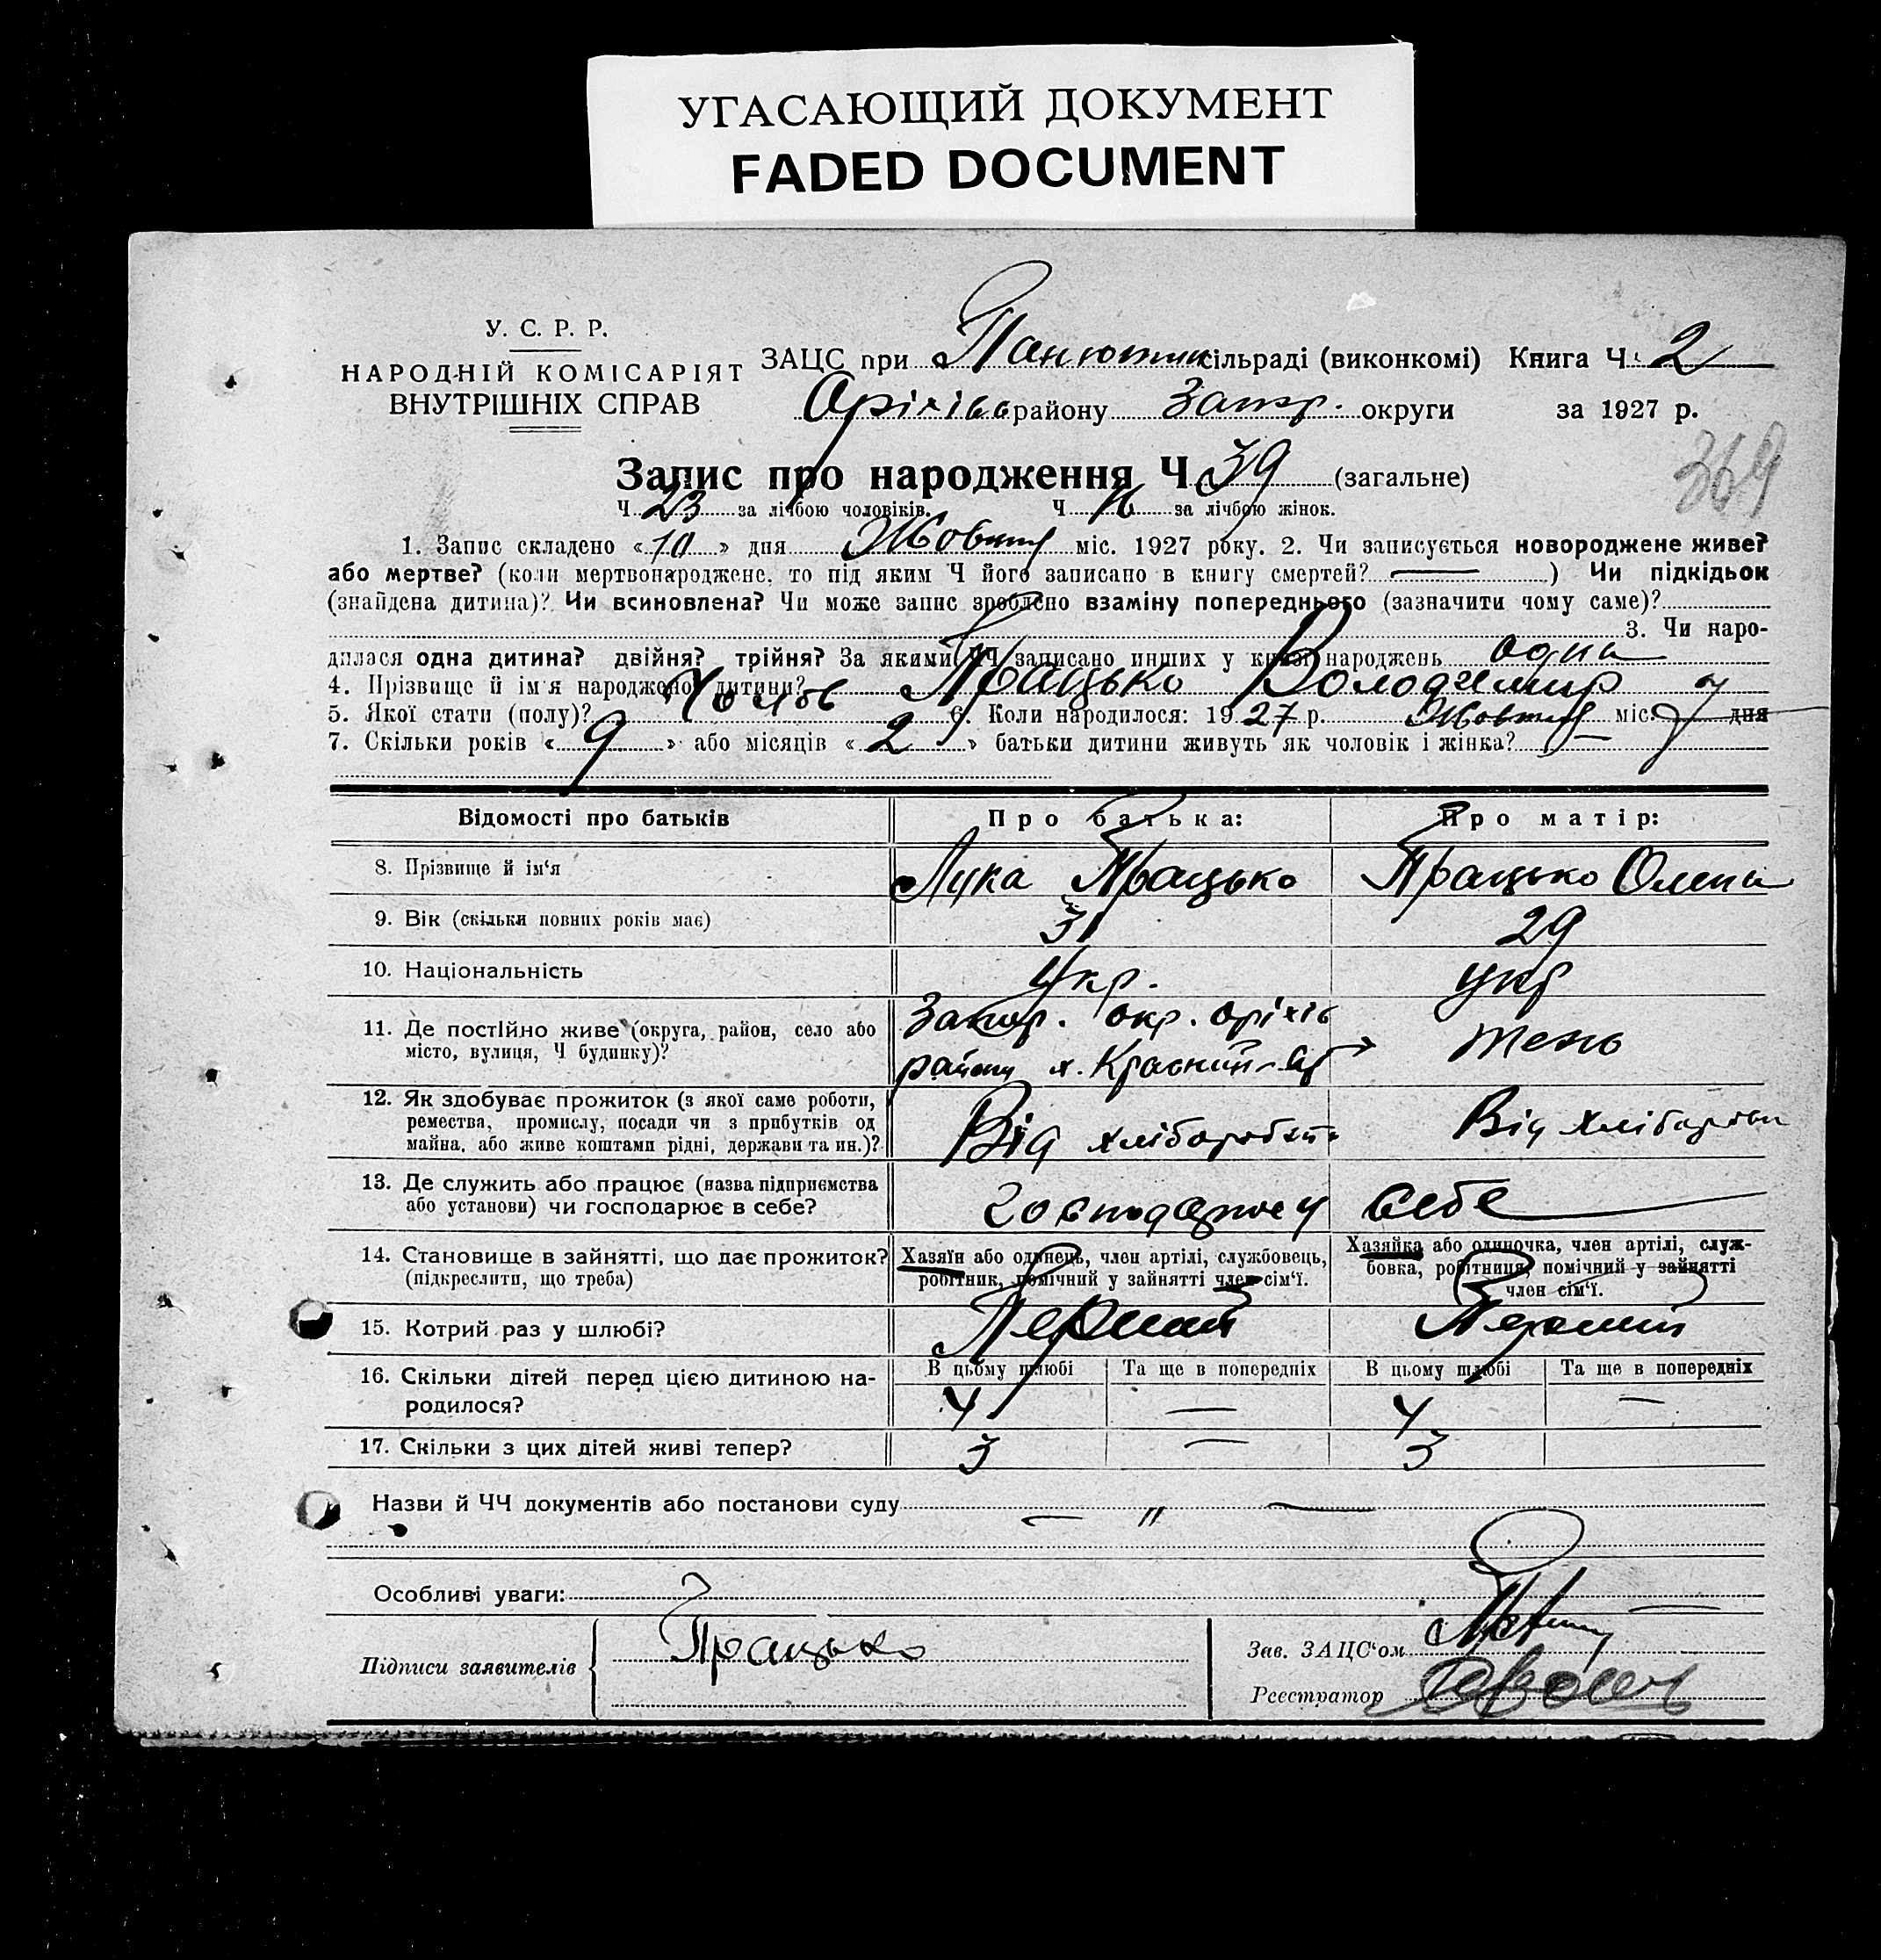 УГАСАЮЩИЙ ДОКУМЕНТ
FADED DOCUMENT
У. С. Р. Р.
НАРОДНІЙ КОМІСАРІЯТ
ВНУТРІШНІХ СПРАВ
ЗАЦС при Панютин сільраді (виконкомі) Книга Ч. 2
Оріхівс району Запор. округи за 1927 р.
369
Запис про народження Ч 39 (загальне)
Ч 23 за лічбою чоловіків. Ч за лічбою жінок.
1. Запис складено «10» дня Жовтня міс. 1927 року. 2. Чи записується новороджене живе?
або мертве? (коли мертвонароджене, то під яким Ч його записано в книгу смертей? — ) Чи підкідьок
(знайдена дитина)? Чи всиновлена? Чи може запис зроблено взаміну попереднього (зазначити чому саме)?
3. Чи наро-
дилася одна дитина? двійня? трійня? За якими ЧЧ записано инших у книзі народжень одна
4. Прізвище й ім'я народженої дитини? Працько Володимир
5. Якої стати (полу)? Чолов 6. Коли народилося: 1927 р. Жовтня міс. 7 дня
7. Скільки років «9» або місяців «2» батьки дитини живуть як чоловік і жінка? —
Відомості про батьків Про батька: Про матір:
8. Прізвище й ім'я Лука Працько Працько Олена
9. Вік (скільки повних років має) 31 29
10. Національність Укр. укр
11. Де постійно живе (округа, район, село або
місто, вулиця, Ч будинку)?
Запор. окр. Оріхів
району х. Красний Яр → тень
12. Як здобуває прожиток (з якої саме роботи,
ремества, промислу, посади чи з прибутків од
майна, або живе коштами рідні, держави та ин.)?
Від хліборобств Від хліборобств
13. Де служить або працює (назва підприємства
або установи) чи господарює в себе?
господарює у себе
14. Становище в зайнятті, що дає прожиток?
(підкреслити, що треба)
Хазяїн або одинець, член артілі, службовець,
робітник, помічний у зайнятті член сім'ї.
Хазяйка або одиночка, член артілі, служ-
бовка, робітниця, помічний у зайнятті
член сім'ї.
15. Котрий раз у шлюбі? Перший Перший
16. Скільки дітей перед цією дитиною на-
родилося?
В цьому шлюбі Та ще в попередніх В цьому шлюбі Та ще в попередніх
4 — 4 —
17. Скільки з цих дітей живі тепер? 3 — 3
Назви й ЧЧ документів або постанови суду — " —
Особливі уваги: —
Підписи заявителів Працько
Зав. ЗАЦС'ом
Реєстратор